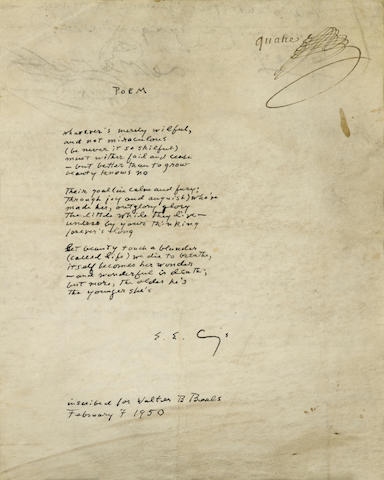 POEM
whatever's merely wilful,
and not miraculous
(be never it so skilful)
must wither fail and cease
—but better than to grow
beauty knows no
their goal(in calm and fury:
through joy and anguish)who've
made her, outglory glory
the little while they live—
unless by your thinking
forever's long
let beauty touch a blunder
(called life)we die to breathe,
itself becomes her wonder
—and wonderful is death;
but more, the older he's
the younger she's
E. E. Cummings
inscribed for Walter B Beals
February 7 1950